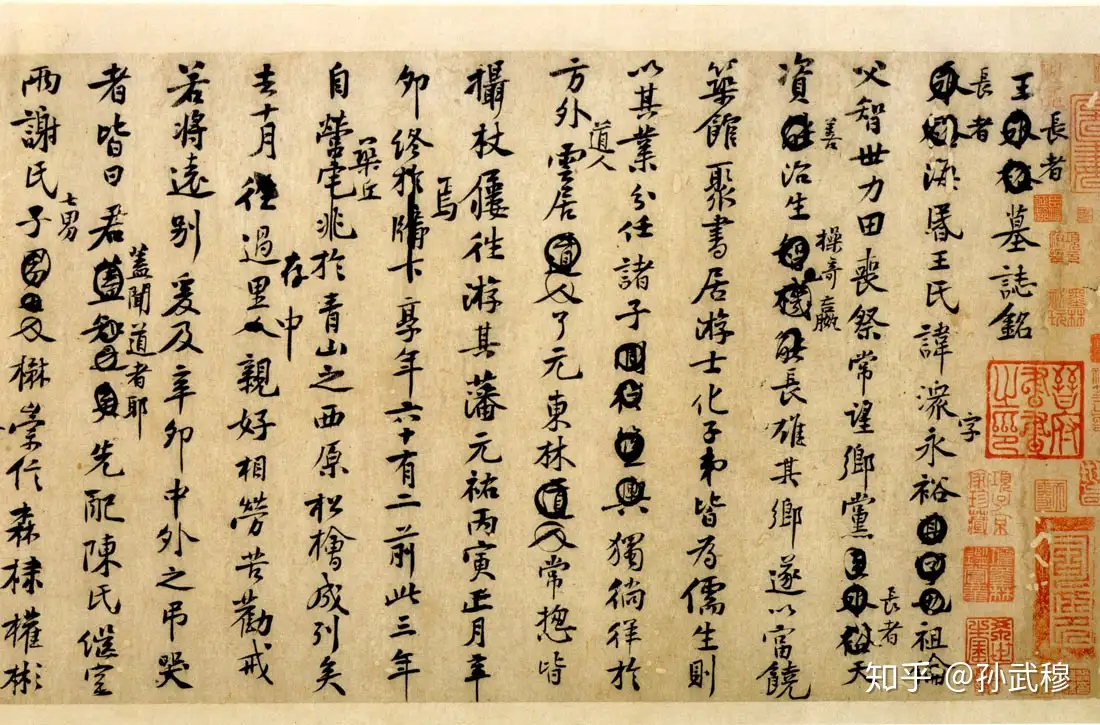 王長者墓誌銘
長者瀕昬王氏諱潨字永裕祖倫
父智世力田喪祭常望鄉黨長者天
資善治生操奇贏長雄其鄉遂以富饒
築館聚書居游士化子弟皆為儒生則
以其業分任諸子獨徜徉於
方外雲居道人了元東林常揔皆
攝杖屨往游其藩焉元祐丙寅正月辛
卯終於牖下享年六十有二前此三年
自營宅兆築丘於青山之西原松檜成列矣
去十月過里中存親好相勞苦勸戒
若將遠别爰及辛卯中外之弔哭
者皆曰君蓋聞道者耶先配陳氏繼室
兩謝氏子七男楙崇仁森棣權彬
知乎 @孙武穆